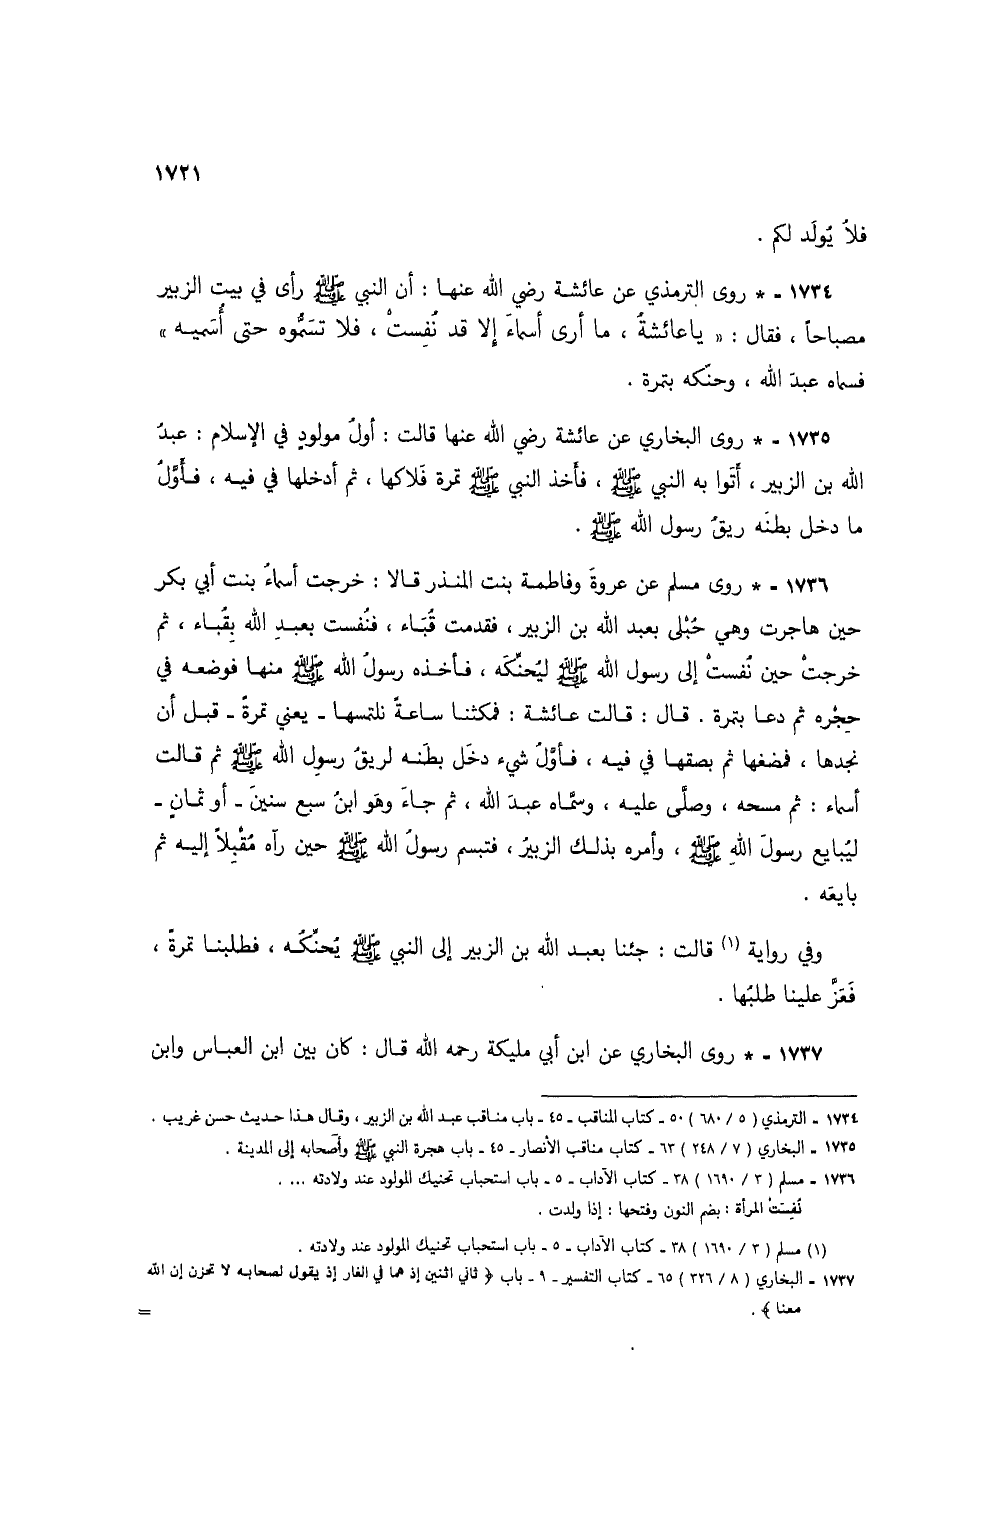 ١٧٢١
فلاَ يُولَد لكم .
١٧٣٤ - * روى الترمذي عن عائشة رضي الله عنها : أن النبي ﷺ رأى في بيت الزبير
مصباحاً ، فقال : « ياعائشةُ ، ما أرى أسماءَ إلا قد نُفِستْ ، فلا تسَمُّوه حتى أُسَميه »
فسماه عبدَ الله ، وحنّكه بتمرة .
١٧٣٥ - * روى البخاري عن عائشة رضي الله عنها قالت : أولُ مولودٍ في الإسلام : عبدُ
الله بن الزبير ، أَتَوا به النبي ﷺ ، فأخذ النبي ﷺ تمرة فَلاكها ، ثم أدخلها في فيه ، فأوَّلُ
ما دخل بطنَه ريقُ رسول الله ﷺ .
١٧٣٦ - * روى مسلم عن عروةَ وفاطمة بنت المنذر قالا : خرجت أسماءُ بنت أبي بكر
حين هاجرت وهي حُبْلى بعبد الله بن الزبير ، فقدمت قُبَاء ، فنُفست بعبدِ الله بِقُباء ، ثم
خرجتْ حين نُفستْ إلى رسول الله ﷺ ليُحنِّكَه ، فأخذه رسولُ الله ﷺ منها فوضعه في
حِجْره ثم دعا بتمرة . قال : قالت عائشة : فمكثنا ساعةً نلتمسها - يعني تمرةً - قبل أن
نجدها ، فمضغها ثم بصقها في فيه ، فأوَّلُ شيء دخَل بطنَه لريقُ رسولِ الله ﷺ ثم قالت
أسماء : ثم مسحه ، وصلَّى عليه ، وسمَّاه عبدَ الله ، ثم جاءَ وهَو ابنُ سبع سنينَ - أو ثمانٍ -
ليُبايع رسولَ اللهِ ﷺ ، وأمره بذلك الزبيرُ ، فتبسم رسولُ الله ﷺ حين رآه مُقْبِلاً إليه ثم
بايعَه .
وفي رواية (١) قالت : جئنا بعبد الله بن الزبير إلى النبي ﷺ يُحنِّكُه ، فطلبنا تمرةً ،
فَعَزَّ علينا طلبُها .
١٧٣٧ - * روى البخاري عن ابن أبي مليكة رحمه الله قال : كان بين ابن العباس وابن
١٧٣٤ - الترمذي ( ٥ / ٦٨٠ ) ٥٠ - كتاب المناقب - ٤٥ - باب مناقب عبد الله بن الزبير ، وقال هذا حديث حسن غريب .
١٧٣٥ - البخاري ( ٧ / ٢٤٨ ) ٦٣ - كتاب مناقب الأنصار - ٤٥ - باب هجرة النبي ﷺ وأصحابه إلى المدينة .
١٧٣٦ - مسلم ( ٣ / ١٦٩٠ ) ٣٨ - كتاب الآداب - ٥ - باب استحباب تحنيك المولود عند ولادته ... .
نُفِستْ المرأة : بضم النون وفتحها : إذا ولدت .
(١) مسلم ( ٣ / ١٦٩٠ ) ٣٨ - كتاب الآداب - ٥ - باب استحباب تحنيك المولود عند ولادته .
١٧٣٧ - البخاري ( ٨ / ٣٢٦ ) ٦٥ - كتاب التفسير - ٩ - باب ﴿ ثاني اثنين إذ هما في الغار إذ يقول لصحابه لا تحزن إن الله
معنا ﴾ .
=